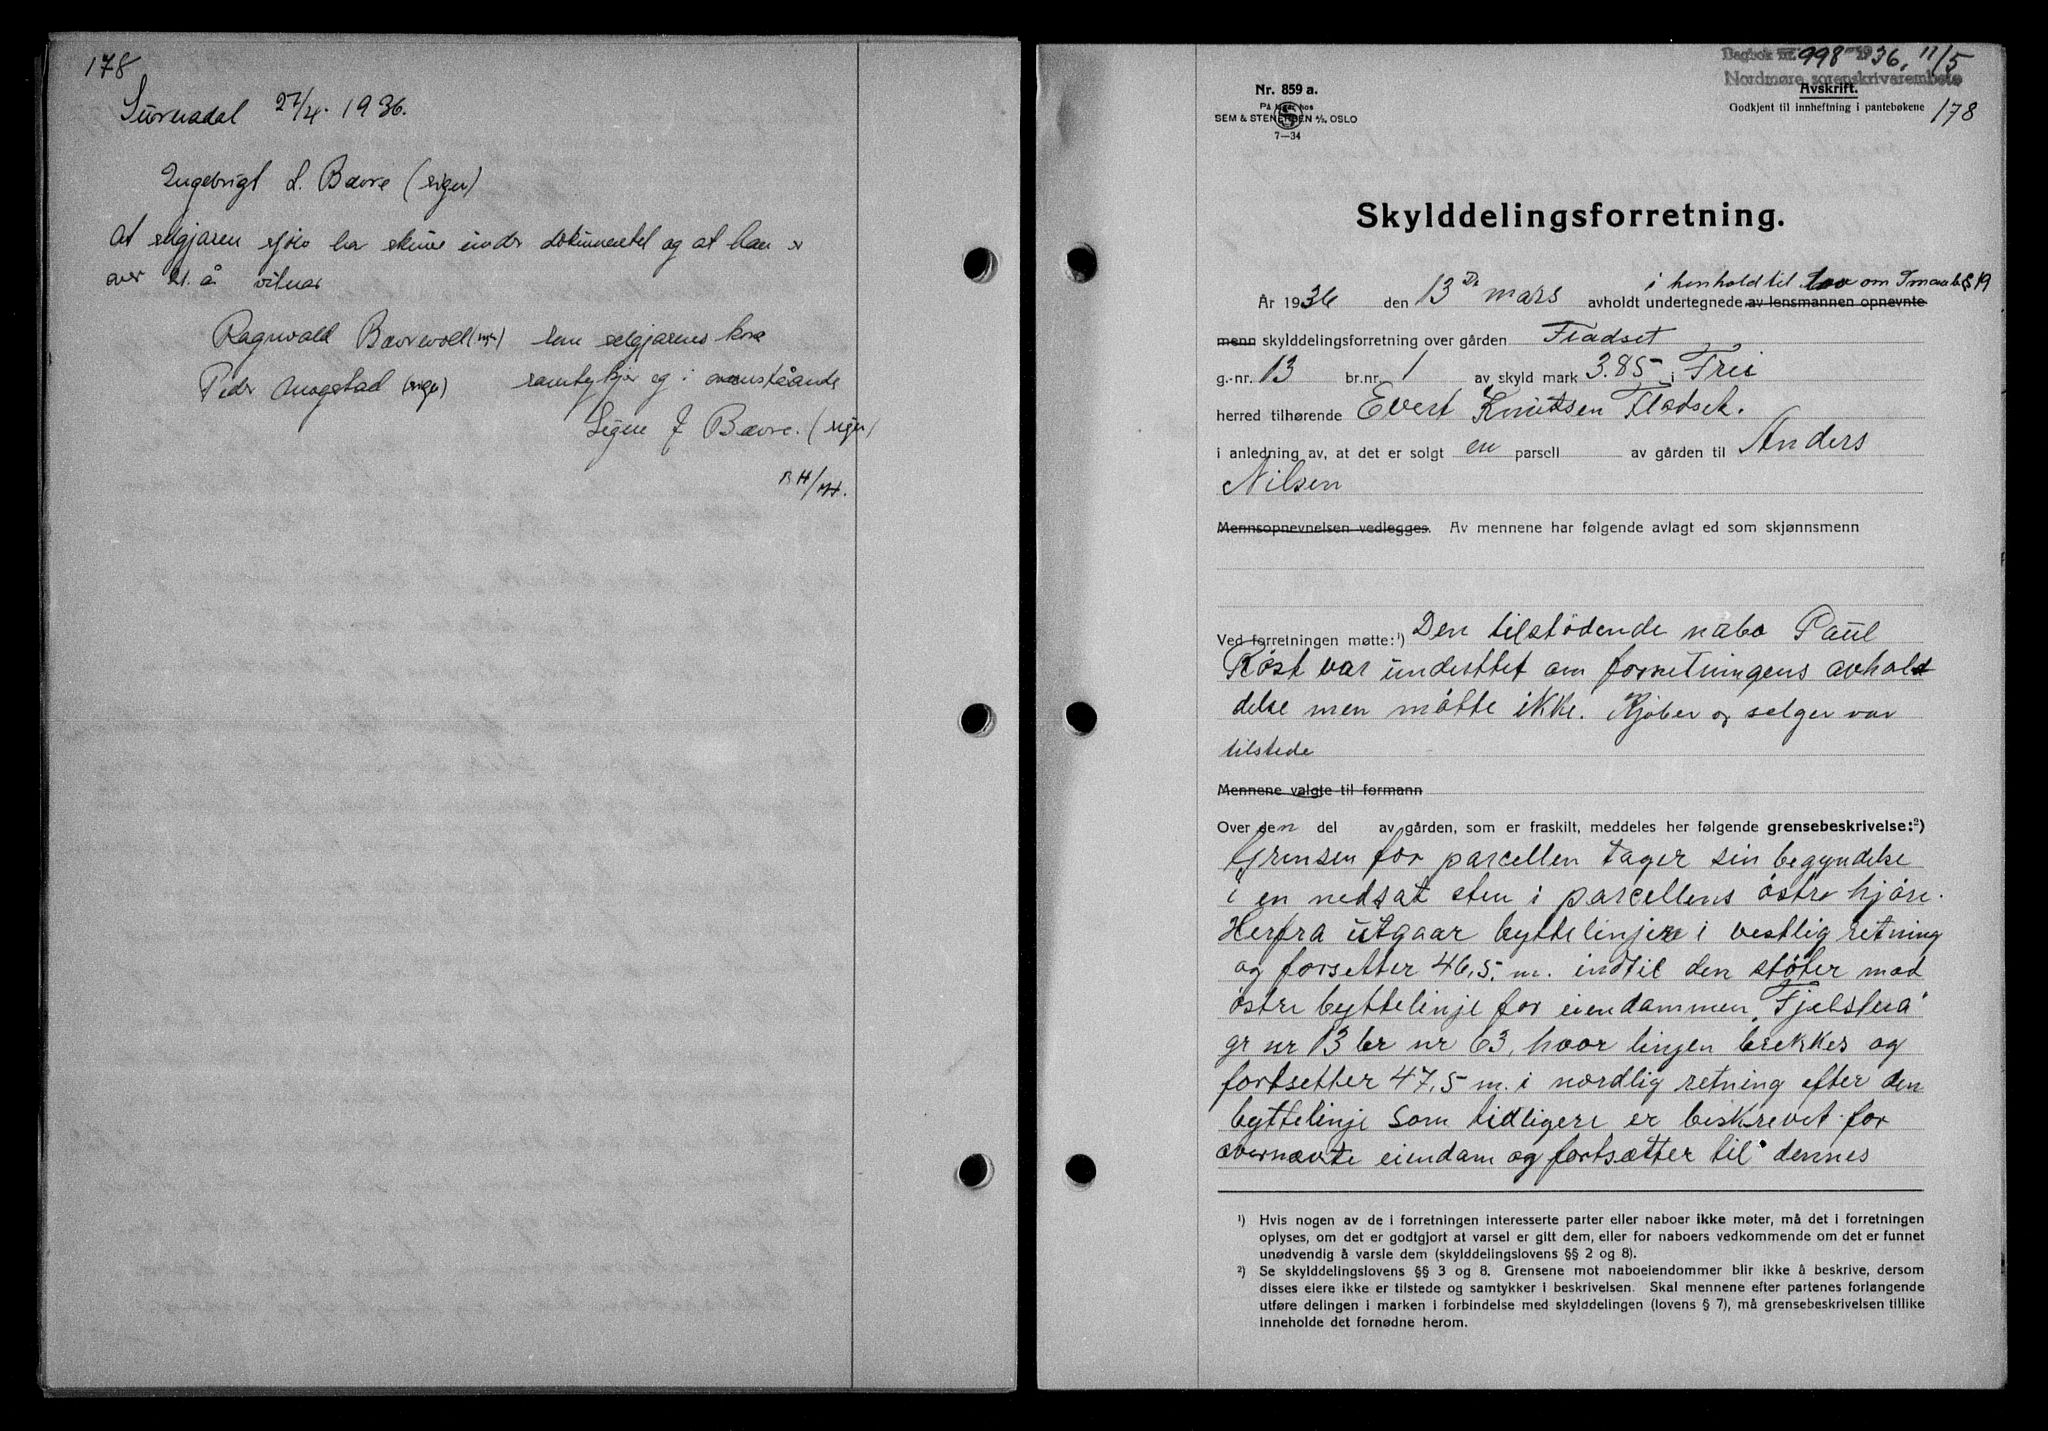 178
Surnadal 27/4. 1936.
Ingebrigt L. Bævre (sign)
At seljaren sjølv har skrive under dokumentet og at han er
over 21. å vitnar
Ragnvald Bævrevold (sign) som seljarens kone
Peder Mogstad (sign) samtykjer eg i ovenståande
Signe J Bævre. (sign)
BH/MH.
Dagbok nr. 998 - 1936, 11/5
Nordmøre sorenskrivarembete
Nr. 859 a.
På lager hos
SEM & STENERSEN A/S, OSLO
7—34
Avskrift.
Godkjent til innheftning i pantebøkene
178
Skylddelingsforretning.
i henhold til lov om Smaabr. § 19
År 1936 den 13de mars avholdt undertegnede av lensmannen opnevnte
menn skylddelingsforretning over gården Fladset
g.-nr. 13 br.nr. 1 av skyld mark 3.85 i Frei
herred tilhørende Evert Knutsen Fladset.
i anledning av, at det er solgt en parsell av gården til Anders
Nilsen
Mennsopnevnelsen vedlegges. Av mennene har følgende avlagt ed som skjønnsmenn
Ved forretningen møtte:¹) Den tilstødende nabo Paul
Røst var underttet om forretningens avhold
delse men møtte ikke. Kjøber og selger var
tilstede
Mennene valgte til formann
Over den del av gården, som er fraskilt, meddeles her følgende grensebeskrivelse:²)
Grensen for parcellen tager sin begyndelse
i en nedsat sten i parcellens østre hjørn.
Herfra utgaar byttelinjen i vestlig retning
og forsetter 46,5. m. indtil den støter mod
østre byttelinje for eiendammen „Fjelstua"
gr nr 13 br nr 63, hvor linjen brekkes og
fortsetter 47,5 m. i nordlig retning efter den
byttelinje som tidligere er beskrevet for
overnævnte eiendam og fortsætter til dennes
¹) Hvis nogen av de i forretningen interesserte parter eller naboer ikke møter, må det i forretningen
oplyses, om det er godtgjort at varsel er gitt dem, eller for naboers vedkommende om det er funnet
unødvendig å varsle dem (skylddelingslovens §§ 2 og 8).
²) Se skylddelingslovens §§ 3 og 8. Grensene mot naboeiendommer blir ikke å beskrive, dersom
disses eiere ikke er tilstede og samtykker i beskrivelsen. Skal mennene efter partenes forlangende
utføre delingen i marken i forbindelse med skylddelingen (lovens § 7), må grensebeskrivelsen tillike
inneholde det fornødne herom.